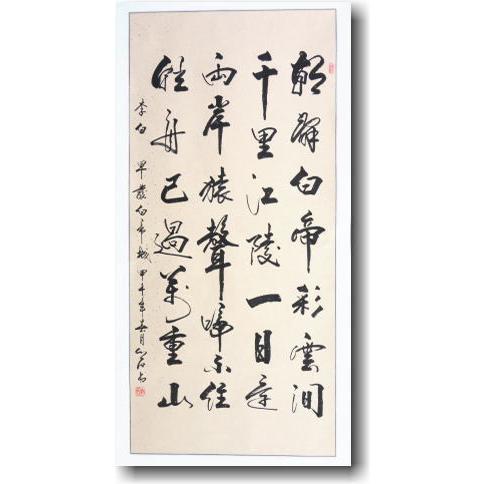 朝辭白帝彩雲間
千里江陵一日還
兩岸猿聲啼不住
輕舟已過萬重山
李白 早發白帝城 甲午年春月 書